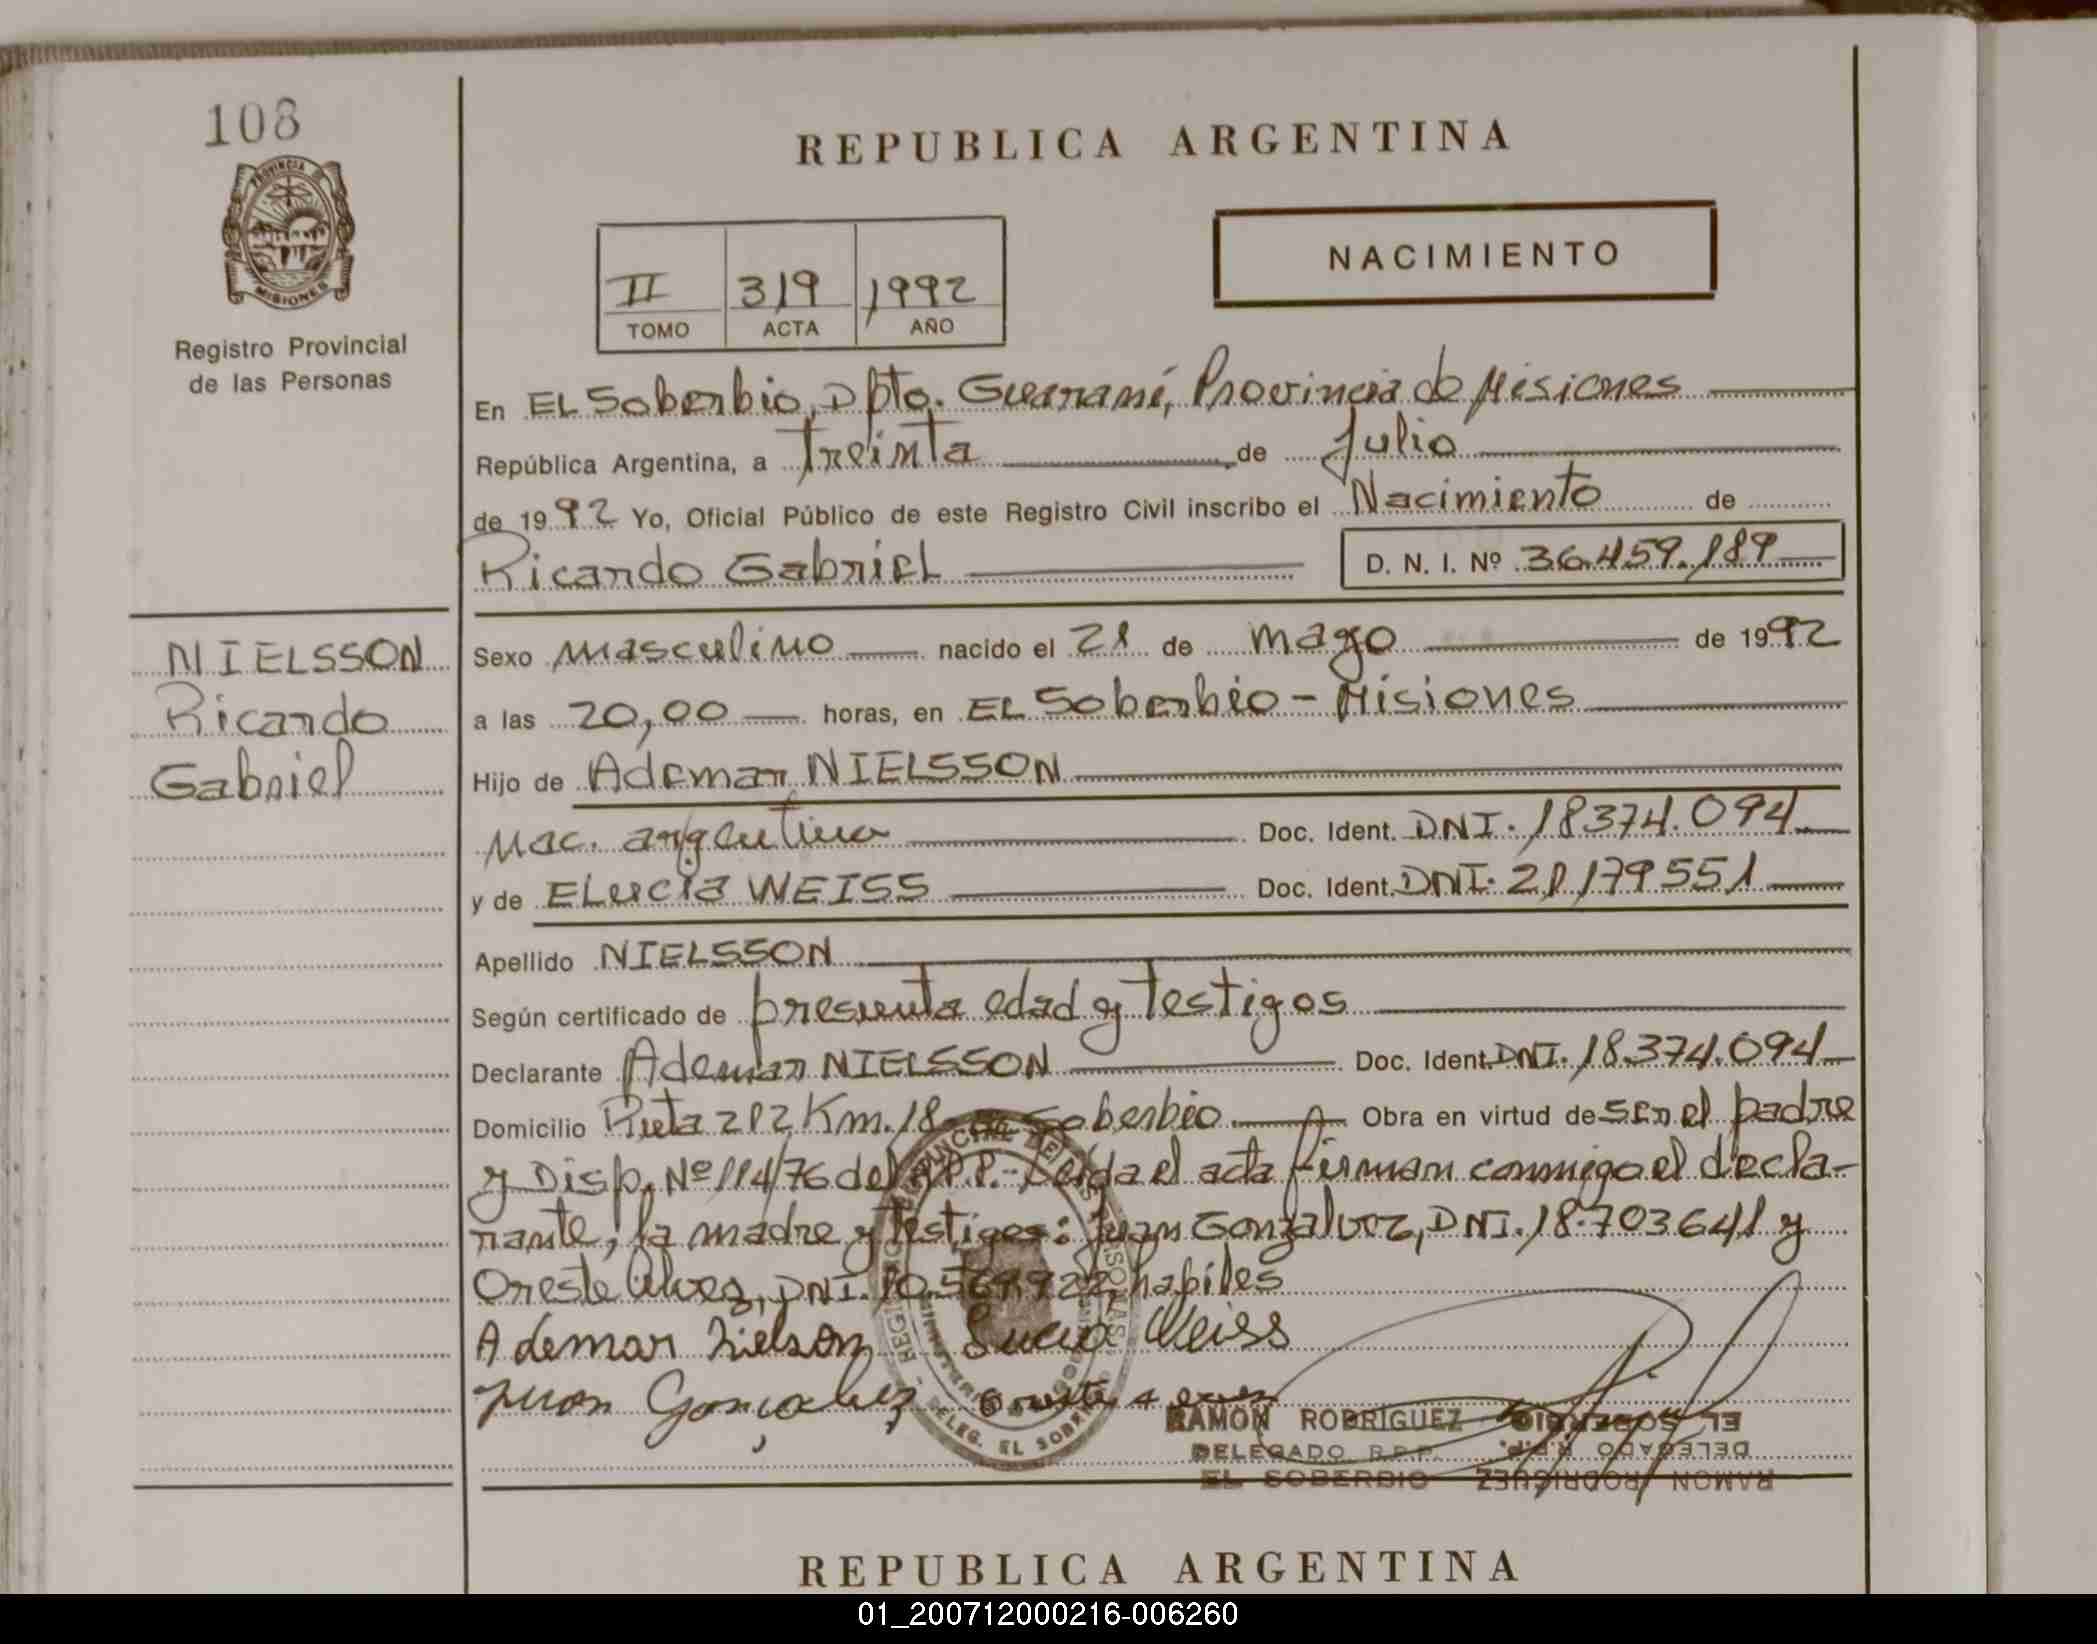 108
PROVINCIA DE
MISIONES
Registro Provincial
de las Personas
REPUBLICA ARGENTINA
II 319 1992
TOMO ACTA AÑO
NACIMIENTO
En EL Soberbio, Dpto. Guaraní, Provincia de Misiones
República Argentina, a Treinta de Julio
de 1992 Yo, Oficial Público de este Registro Civil inscribo el Nacimiento de
Ricardo Gabriel D. N. I. Nº 36.459.189
NIELSSON
Ricardo
Gabriel
Sexo masculino nacido el 28 de mayo de 1992
a las 20,00 horas, en EL Soberbio - Misiones
Hijo de Ademar NIELSSON
Nac. argentina Doc. Ident. DNI. 18374.094
y de ELucia WEISS Doc. Ident. DNI. 21.179551
Apellido NIELSSON
Según certificado de presunta edad y Testigos
Declarante Ademar NIELSSON Doc. Ident. DNI. 18.374.094
Domicilio Ruta 212 Km. 18 Soberbio Obra en virtud de ser el padre
y Disp. Nº 114/76 del R.P.P.- Leída el acta firman conmigo el decla-
rante, la madre y Testigos: Juan Gonzalvez, DNI. 18.703641 y
Oreste Alvez, DNI. 10.569.922, habiles
Ademar Nielson Lucia Weiss
Juan Gonçalvez Oreste
RAMON RODRIGUEZ EL SOBERBIO
DELEGADO R.P.P. DELEGADO R.P.P.
EL SOBERBIO RAMON RODRIGUEZ
REPUBLICA ARGENTINA
01_200712000216-006260